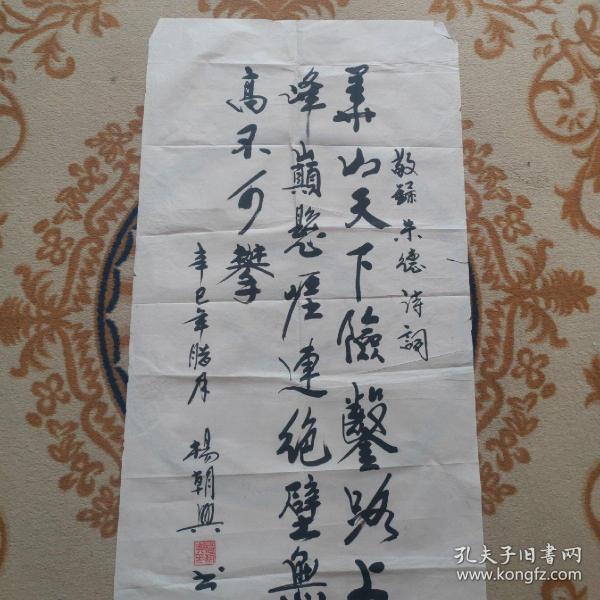 敬録朱德詩詞
華山天下險鑿路上
峰巔懸崖連絶壁無
高不可攀
辛巳年腊月
楊朝興
书
孔夫子旧书网
www.kongfz.com